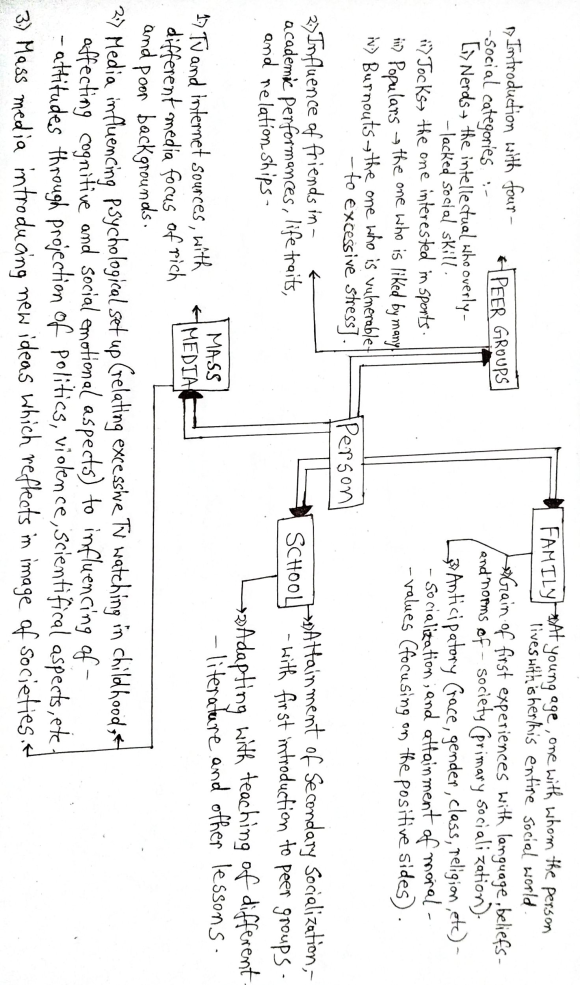 PEER GROUPS
1) Introduction with four-
-social categories :-
[i) Nerds → the intellectual who overly-
-lacked social skill.
ii) Jocks → the one interested in sports.
iii) Populars → the one who is liked by many.
iv) Burnouts → the one who is vulnerable-
-to excessive stress].
2) Influence of friends in-
academic performances, life traits,
and relationships.
Person
FAMILY
1) At young age, one with whom the person
lives with is her/his entire social world.
2) Gain of first experiences with language, beliefs-
and norms of - society (primary socialization).
3) Anticipatory (race, gender, class, religion, etc)-
- socialization, and attainment of moral-
- values (focusing on the positive sides).
MASS
MEDIA
1) TV and internet sources, with
different media focus of rich
and poor backgrounds.
2) Media influencing psychological set up (relating excessive TV watching in childhood,
affecting cognitive and social emotional aspects) to influencing of -
- attitudes through projection of politics, violence, scientifical aspects, etc.
3) Mass media introducing new ideas which reflects in image of societies.
SCHOOL
1) Attainment of Secondary Socialization,-
- with first introduction to peer groups.
2) Adapting with teaching of different
- literature and other lessons.